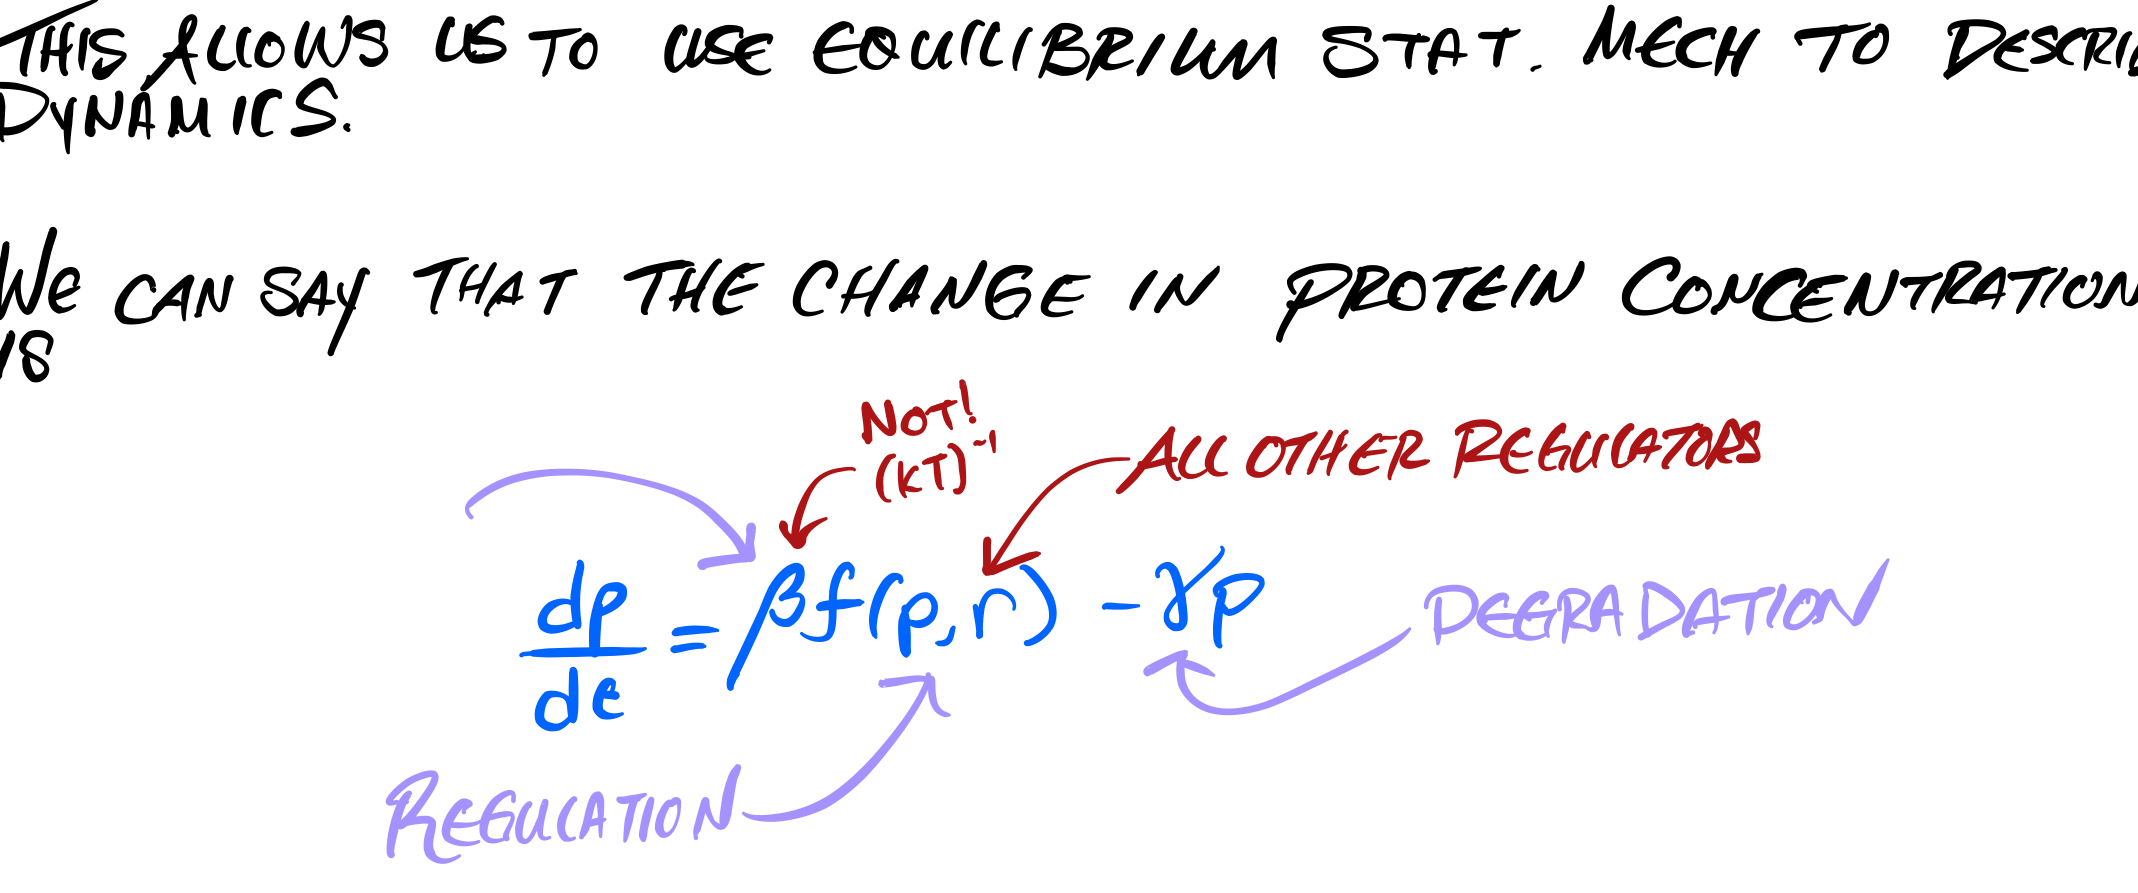 THIS ALLOWS US TO USE EQUILIBRIUM STAT. MECH TO DESCRI
DYNAMICS.
WE CAN SAY THAT THE CHANGE IN PROTEIN CONCENTRATION
IS
NOT!
(kT)⁻¹
ALL OTHER REGULATORS
dp/dt = βf(p,r) - γp
DEGRADATION
REGULATION